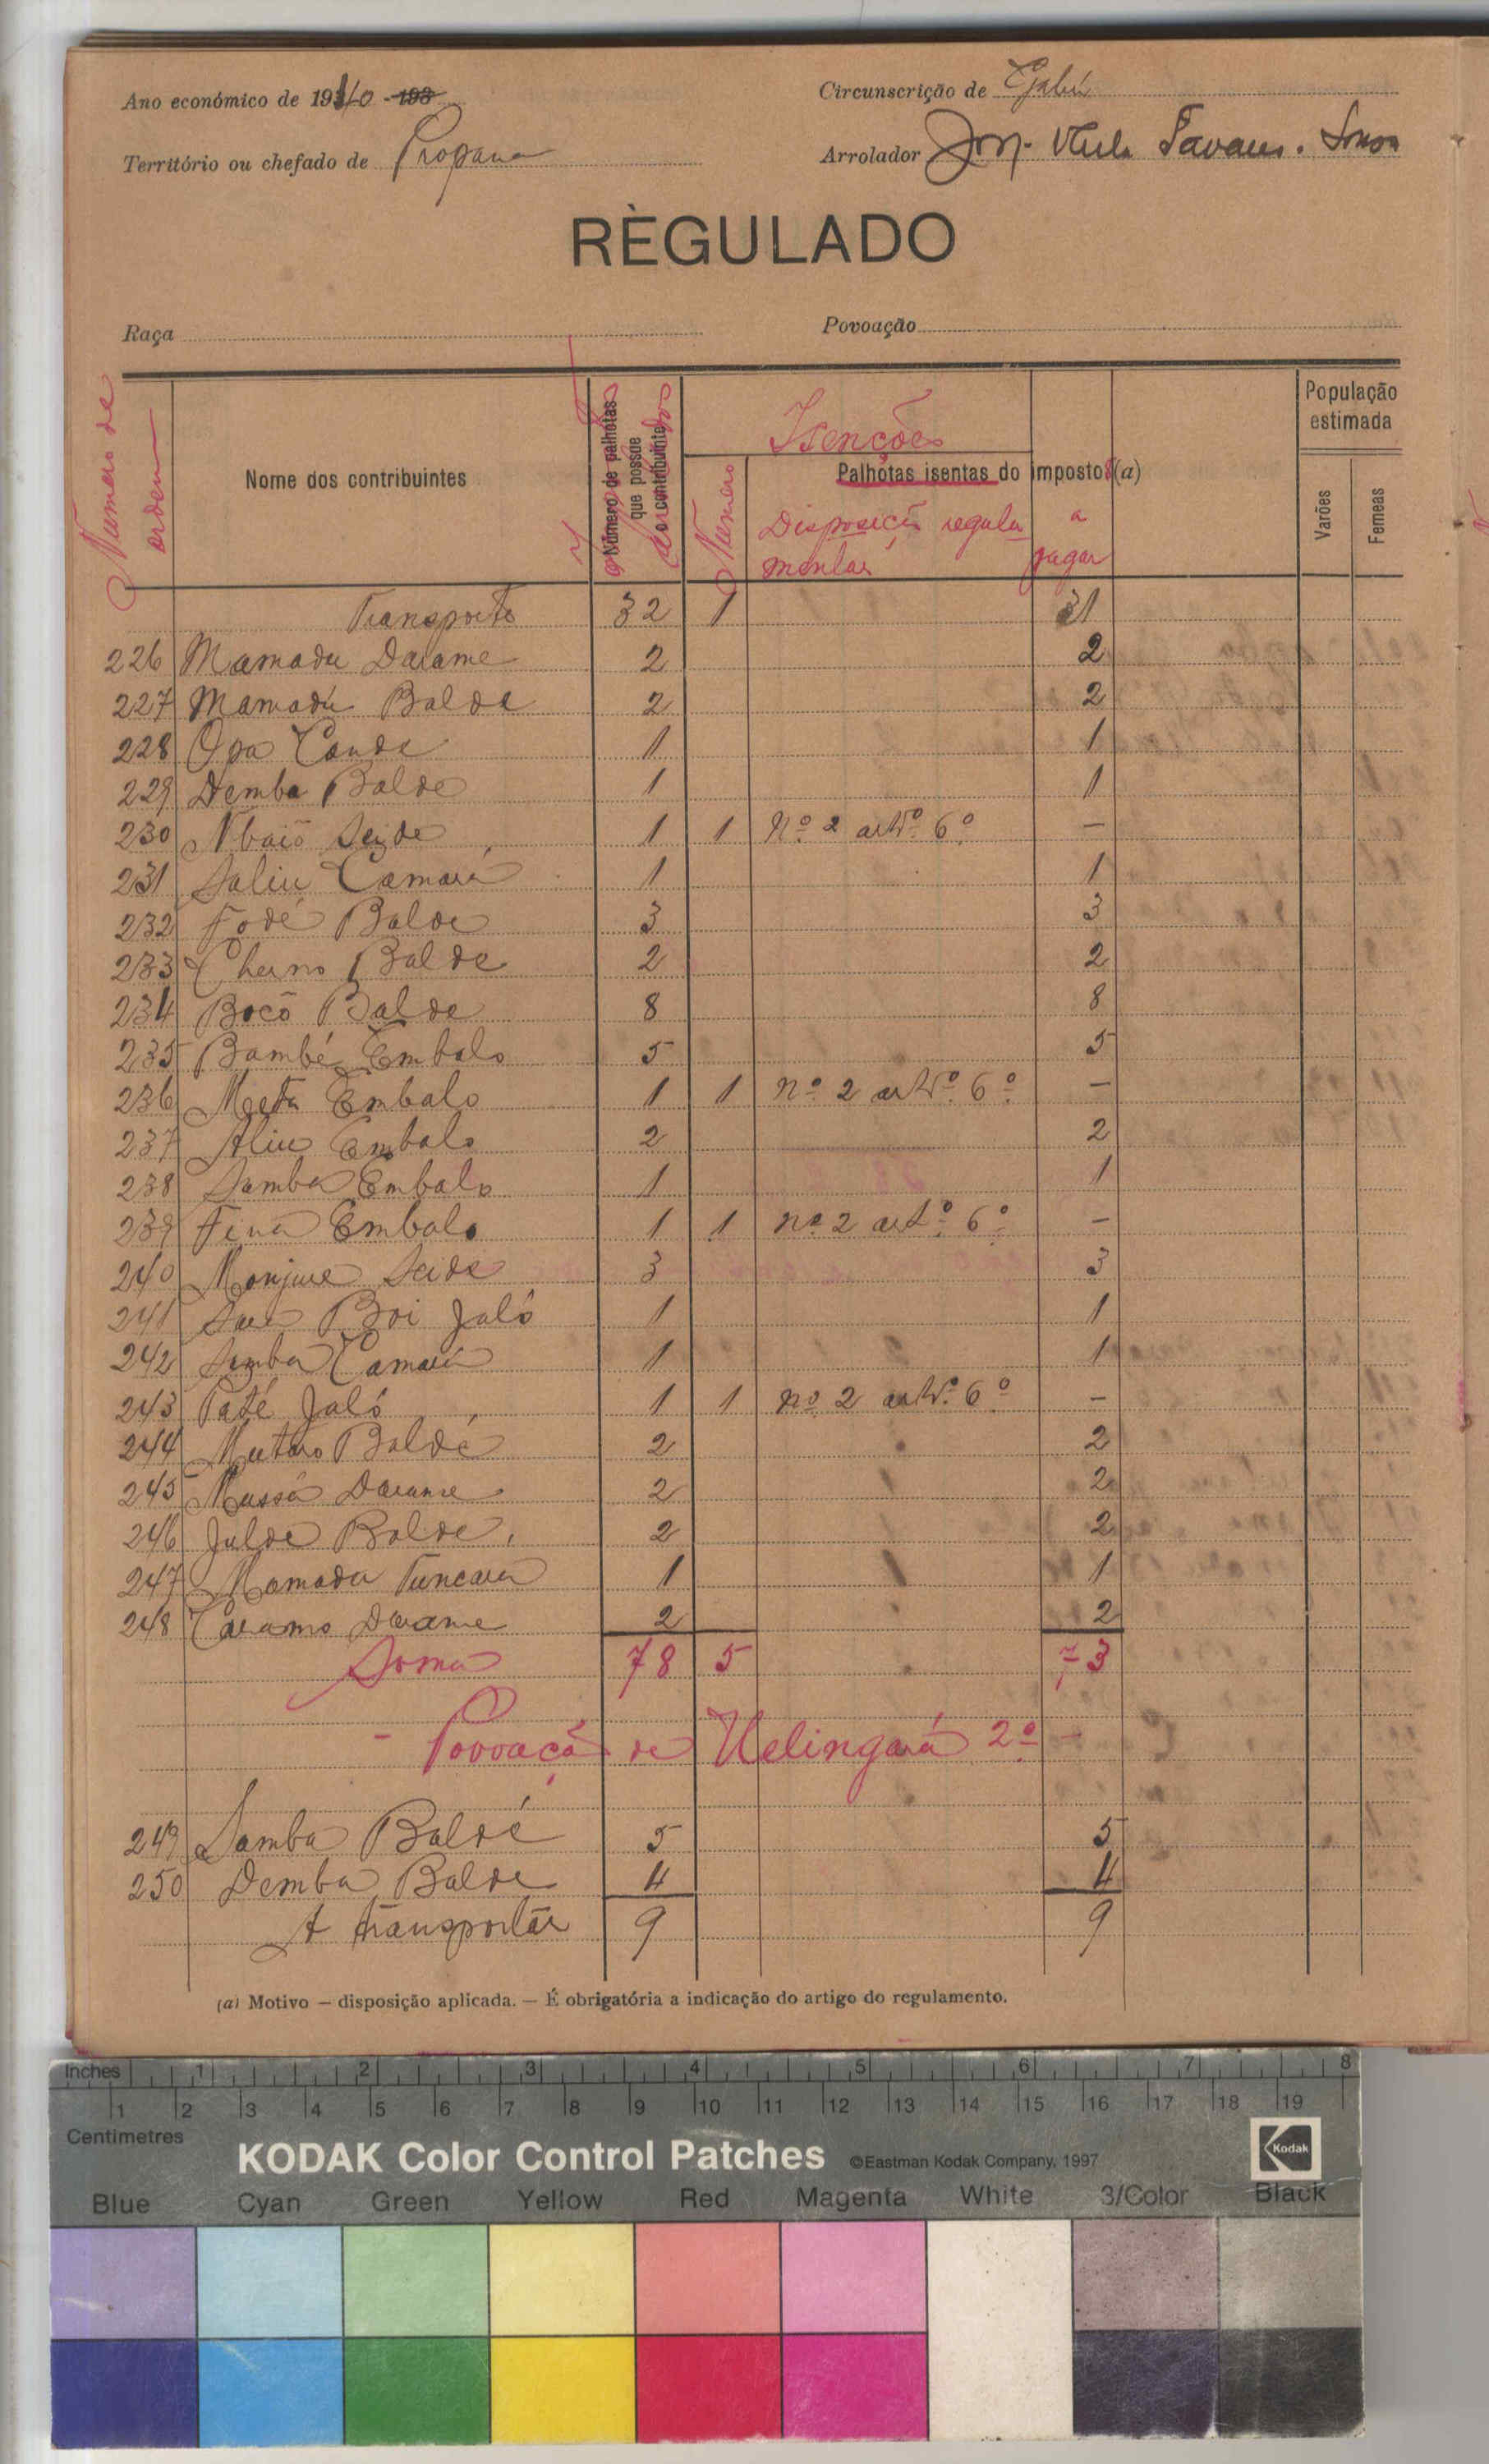 Ano económico de 1940 - 193
Circunscrição de Gabú
Território ou chefado de Propana
Arrolador Tavares. Sousa
RÈGULADO
Raça
Povoação
Numero de ordem
Nome dos contribuintes
Número de palhotas que possue o contribuinte
Isenções
Palhotas isentas do imposto (a)
Numero
Disposição regulamentar
a pagar
População estimada
Varões
Femeas
Transporte 32 1 31
226 Mamadu Darame 2 2
227 Mamadú Balde 2 2
228 Opa Cande 1 1
229 Demba Balde 1 1
230 Seide 1 1 Nº 2 artº 6º —
231 Saliu Camará 1 1
232 Fodé Balde 3 3
233 Cherno Balde 2 2
234 Bocô Balde 8 8
235 Bambé Embalo 5 5
236 Meta Embalo 1 1 nº 2 artº 6º —
237 Aliu Embalo 2 2
238 Samba Embalo 1 1
239 Finá Embalo 1 1 nº 2 artº 6º —
240 Monjure Seide 3 3
241 Boi Jaló 1 1
242 Samba Camará 1 1
243 Paté Jaló 1 1 nº 2 artº 6º —
244 Mutaro Baldé 2 2
245 Mussá Darame 2 2
246 Julde Balde 2 2
247 Mamadu Tuncara 1 1
248 Caramo Darame 2 2
Soma 78 5 73
- Povoação de Velingará 2º -
249 Samba Baldé 5 5
250 Demba Balde 4 4
A transportar 9 9
(a) Motivo — disposição aplicada. — É obrigatória a indicação do artigo do regulamento.
Inches 1 2 3 4 5 6 7 8
1 2 3 4 5 6 7 8 9 10 11 12 13 14 15 16 17 18 19
Centimetres
KODAK Color Control Patches ©Eastman Kodak Company, 1997 Kodak
Blue Cyan Green Yellow Red Magenta White 3/Color Black